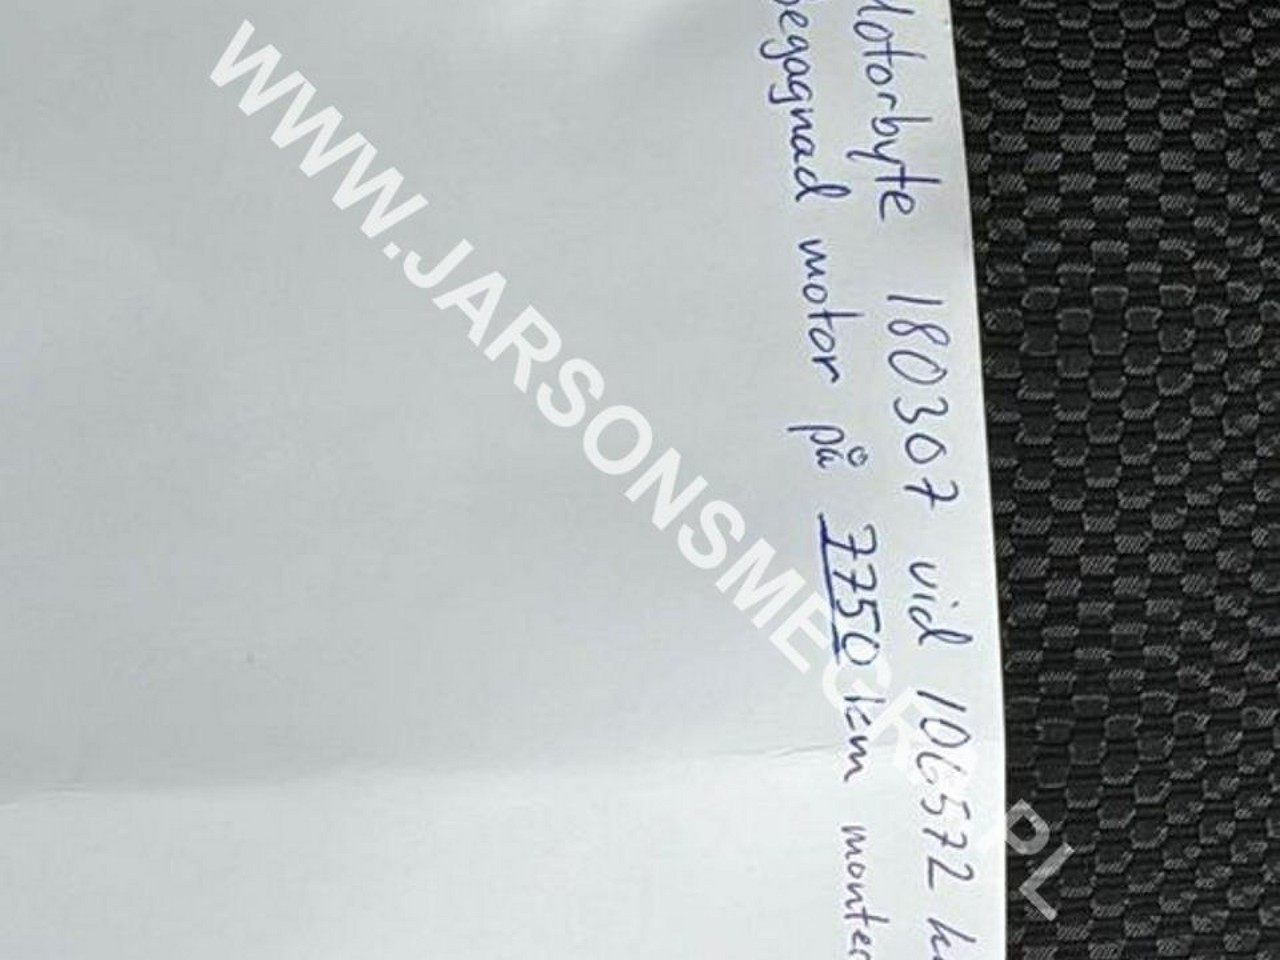 Motorbyte 180307 vid 106572 k
begagnad motor på 7750 km monter
WWW.JARSONSMEGR.PL